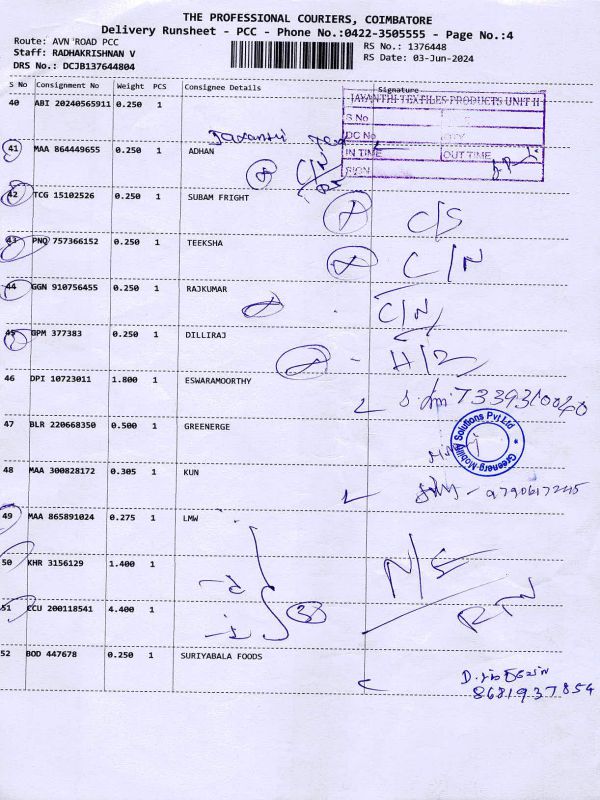 THE PROFESSIONAL COURIERS, COIMBATORE
Delivery Runsheet - PCC - Phone No.:0422-3505555 - Page No.:4
Route: AVN ROAD PCC
RS No.: 1376448
Staff: RADHAKRISHNAN V
RS Date: 03-Jun-2024
DRS No.: DCJB137644804
S No Consignment No Weight PCS Consignee Details Signature
40 ABI 20240565911 0.250 1
JAYANTHI TEXTILES PRODUCTS UNIT II
S No
DC No
IN TIME OUT TIME
SIGN
41 MAA 864449655 0.250 1 ADHAN C/N
42 TCG 15102526 0.250 1 SUBAM FRIGHT C/S
43 PNQ 757366152 0.250 1 TEEKSHA C/N
44 GGN 910756455 0.250 1 RAJKUMAR C/N
45 GPM 377383 0.250 1 DILLIRAJ
46 DPI 10723011 1.800 1 ESWARAMOORTHY 7339310040
47 BLR 220668350 0.500 1 GREENERGE
Greenerg-Mobility Solutions Pvt Ltd
48 MAA 300828172 0.305 1 KUN 9790617245
49 MAA 865891024 0.275 1 LMW
50 KHR 3156129 1.400 1 N/S
51 CCU 200118541 4.400 1
52 BOD 447678 0.250 1 SURIYABALA FOODS
8681937854